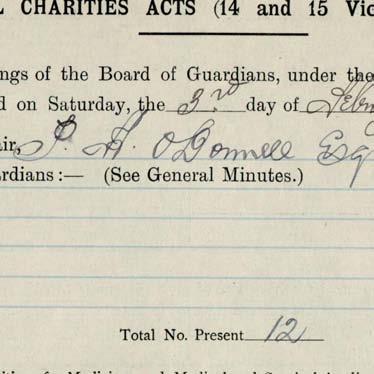 L CHARITIES ACTS (14 and 15 Vic
ngs of the Board of Guardians, under the
d on Saturday, the 3rd day of Febr
air, P. H. O'Donnell Esq
rdians :— (See General Minutes.)
Total No. Present 12